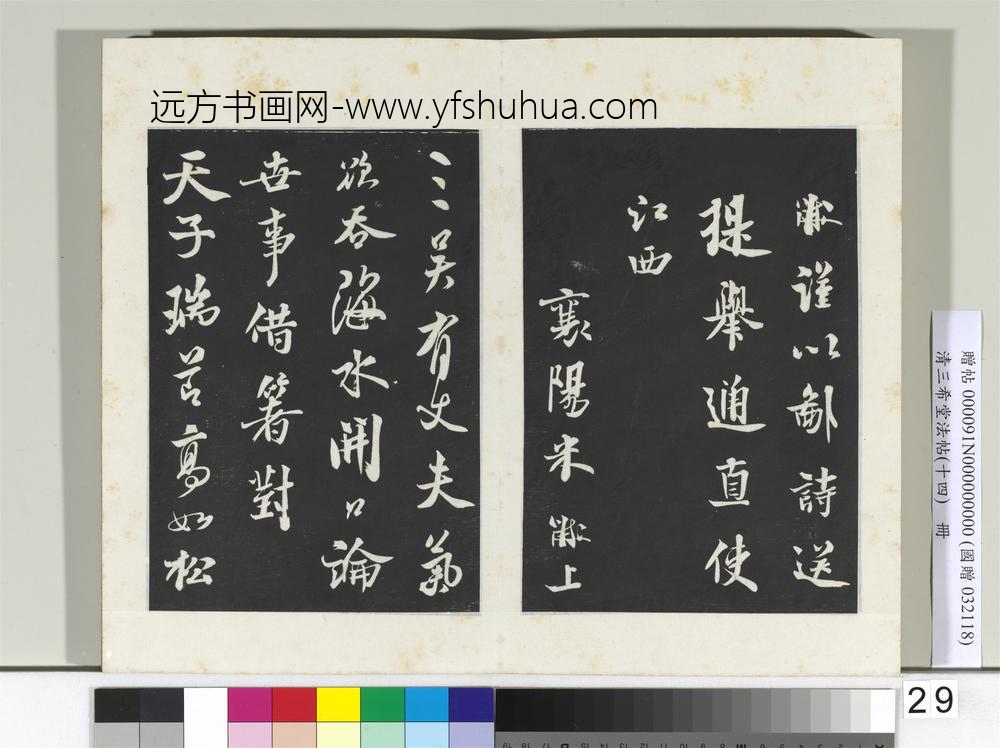 远方书画网-www.yfshuhua.com
黻謹以鄙詩送
提舉通直使
江西
襄陽米黻上
三吳有丈夫氣
欲吞海水開口論
世事借箸對
天子瑞芝高如松
贈帖 000091N000000000 (國贈 032118)
清三希堂法帖(十四) 冊
29